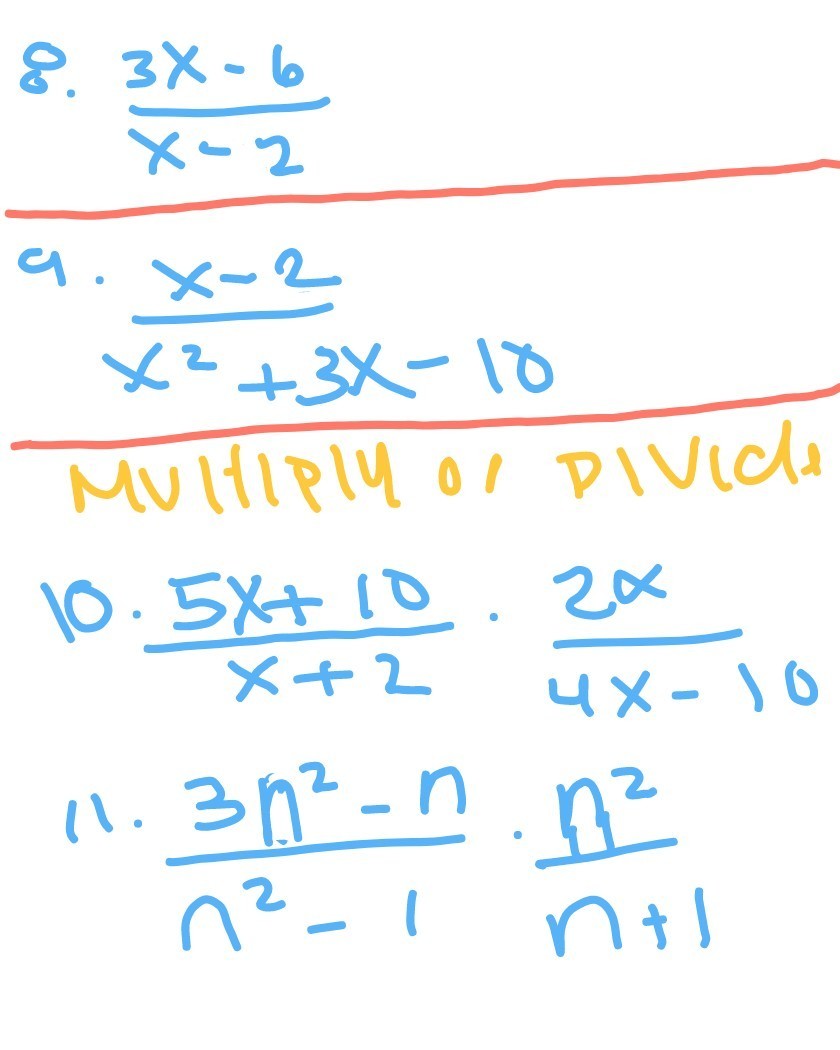 8. 3x - 6
x - 2
9. x - 2
x² + 3x - 10
Multiply or Divide
10. 5x + 10 · 2x
x + 2 4x - 10
11. 3n² - n · n²
n² - 1 n + 1